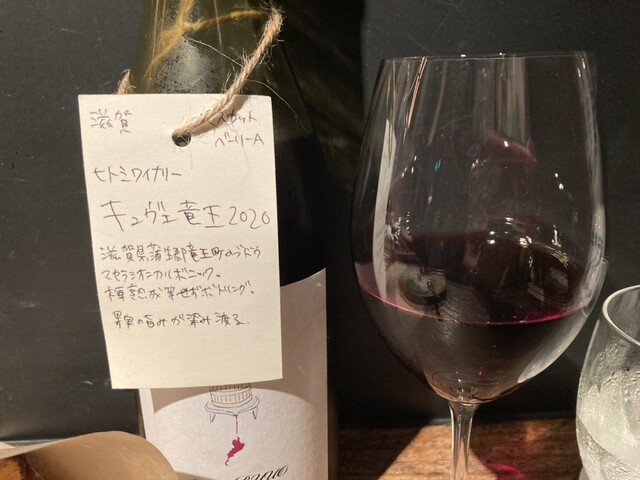 滋賀
マスカット
ベーリーA
ヒトミワイナリー
キュヴェ竜王2020
滋賀県蒲生郡竜王町のブドウ
マセラシオンカルボニック。
樽熟成させずボトリング。
果実の旨みが染み渡る。